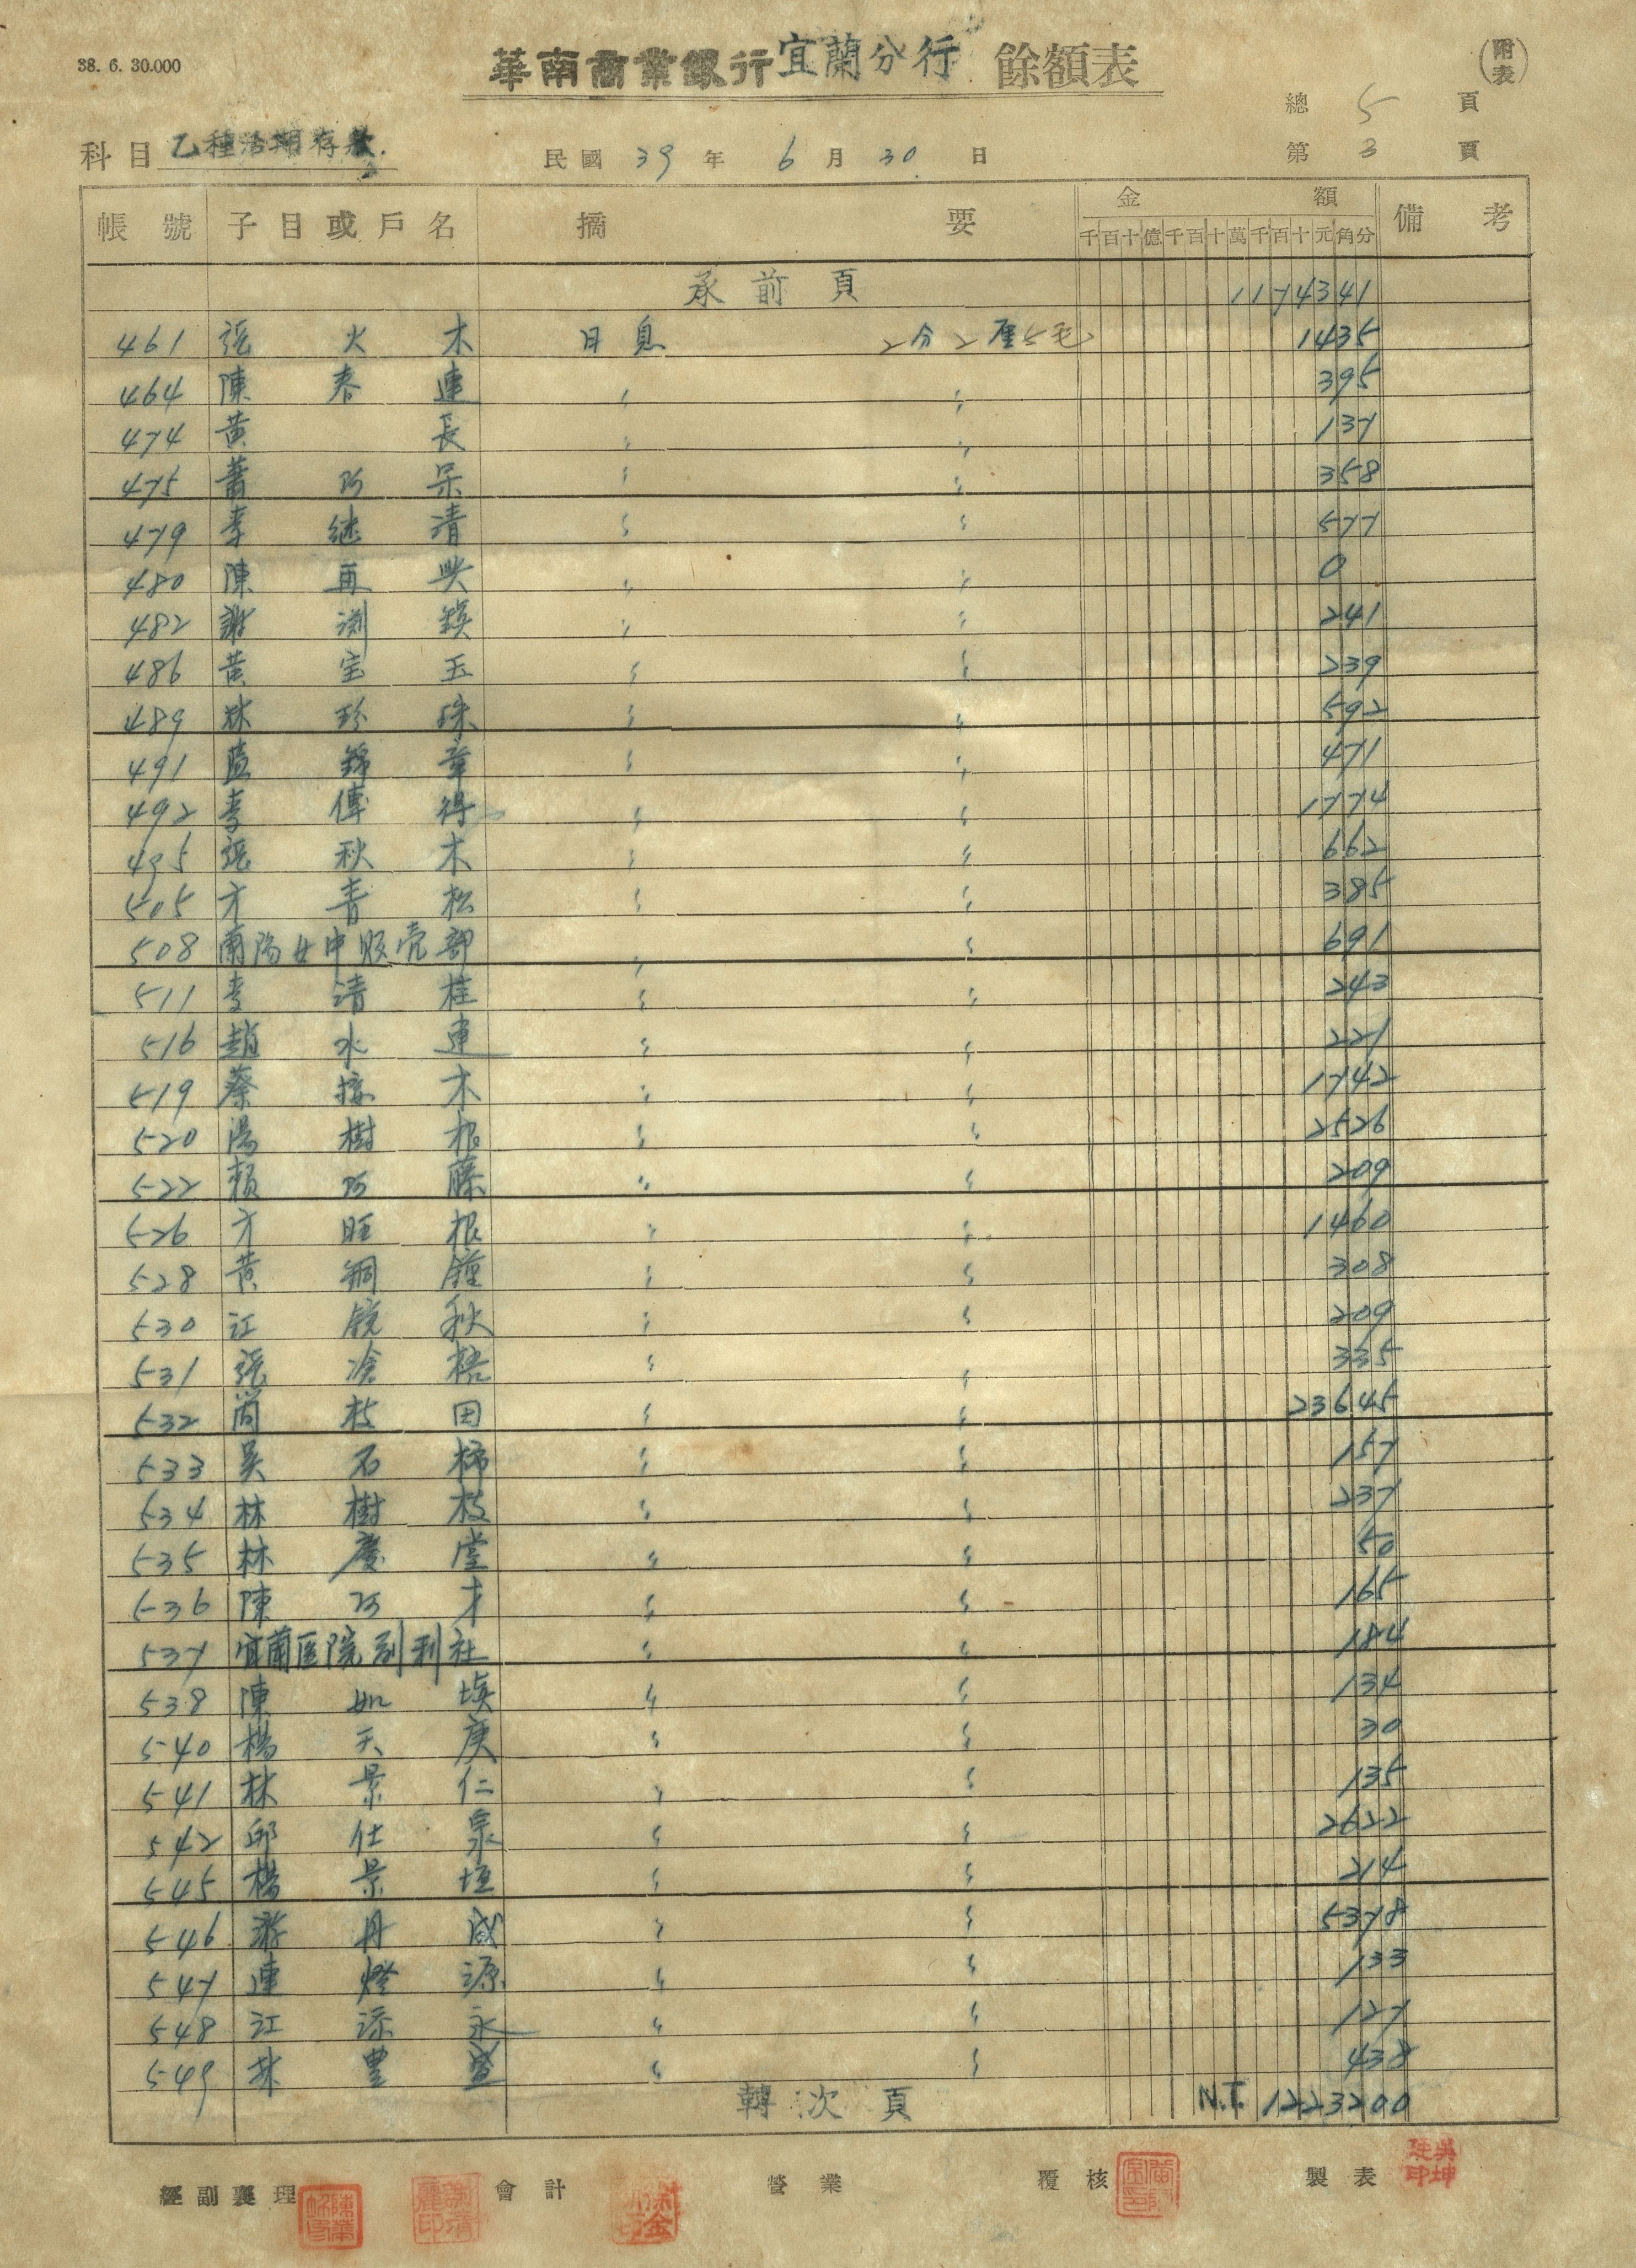 38. 6. 30.000
華南商業銀行宜蘭分行 餘額表
(附表)
總 5 頁
科目 乙種活期存款. 民國 39 年 6 月 30 日 第 3 頁
帳號 子目或戶名 摘要 金額 備考
千百十億千百十萬千百十元角分
承前頁 1174341
461 張火木 日息 2分2厘5毛 1435
464 陳春連 〃 〃 395
474 黄長 〃 〃 137
475 蕭阿呆 〃 〃 358
479 李継清 〃 〃 577
480 陳再興 〃 〃 0
482 謝渕鍈 〃 〃 241
486 黄宝玉 〃 〃 239
489 林珍珠 〃 〃 592
491 藍錦章 〃 〃 471
492 李傳得 〃 〃 1774
495 張秋木 〃 〃 662
505 方青松 〃 〃 385
508 蘭陽女中販売部 〃 〃 691
511 李清桂 〃 〃 243
516 趙水連 〃 〃 221
519 蔡接木 〃 〃 1742
520 湯樹根 〃 〃 2526
522 賴阿藤 〃 〃 209
526 方旺根 〃 〃 1460
528 黄銅鐘 〃 〃 308
530 江鏡秋 〃 〃 209
531 張滄梧 〃 〃 335
532 簡枝田 〃 〃 23645
533 吳石柿 〃 〃 157
534 林樹枝 〃 〃 237
535 林慶堂 〃 〃 50
536 陳阿才 〃 〃 165
537 宜蘭医院副利社 〃 〃 184
538 陳如埉 〃 〃 134
540 楊天庚 〃 〃 30
541 林景仁 〃 〃 135
542 邱仕泉 〃 〃 2622
545 楊景垣 〃 〃 214
546 游丹成 〃 〃 5378
547 連燈源 〃 〃 133
548 江添永 〃 〃 127
549 林豊盛 〃 〃 438
轉次頁 N.T. 1223200
經副襄理 會計 營業 覆核 製表